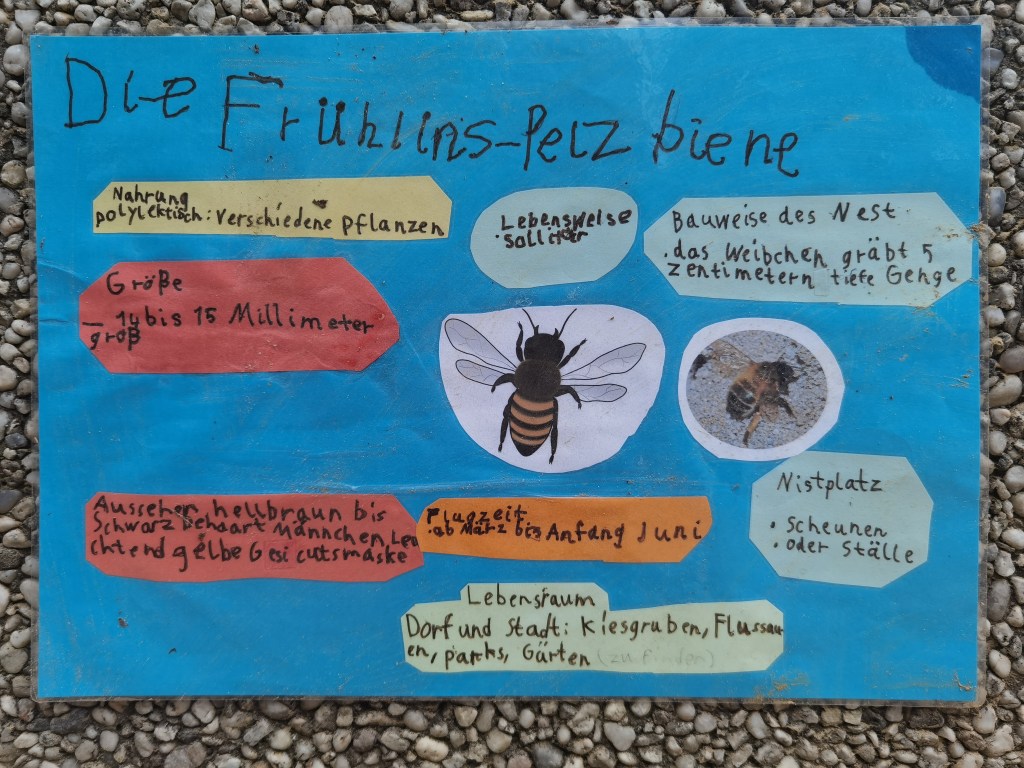 Die Frühlins-Pelzbiene
Nahrung
polylektisch: Verschiedene pflanzen
Lebensweise
·solitär
Bauweise des Nest
·das Weibchen gräbt 5
zentimetern tiefe Gehge
Größe
– 14 bis 15 Millimeter
groß
Nistplatz
• scheunen
• oder ställe
Aussehen hellbraun bis
Schwarz behaart Männchen Leu
chtend gelbe Gesicutsmaske
Flugzeit
·ab März bis Anfang Juni
Lebensraum
Dorf und Stadt: Kiesgruben, Flussau-
en, parks, Gärten (zu finden)